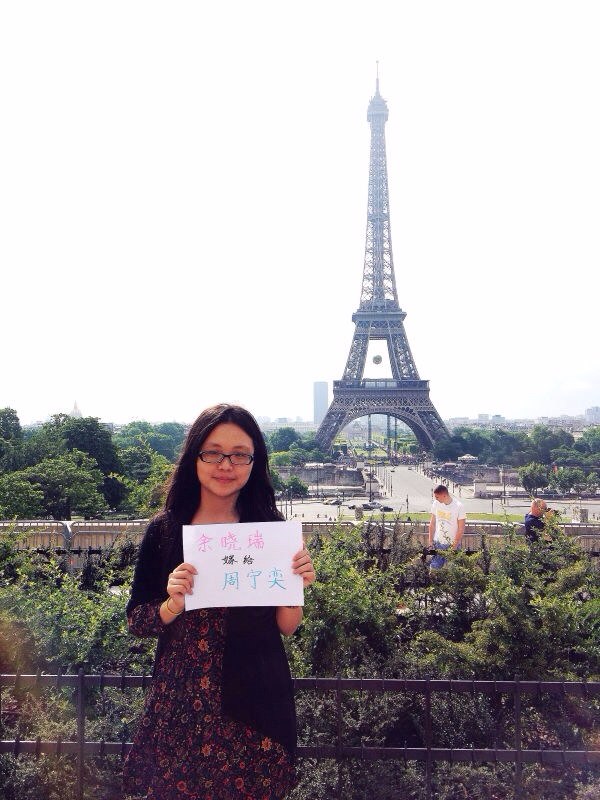 余晓瑞
嫁给
周宁奕